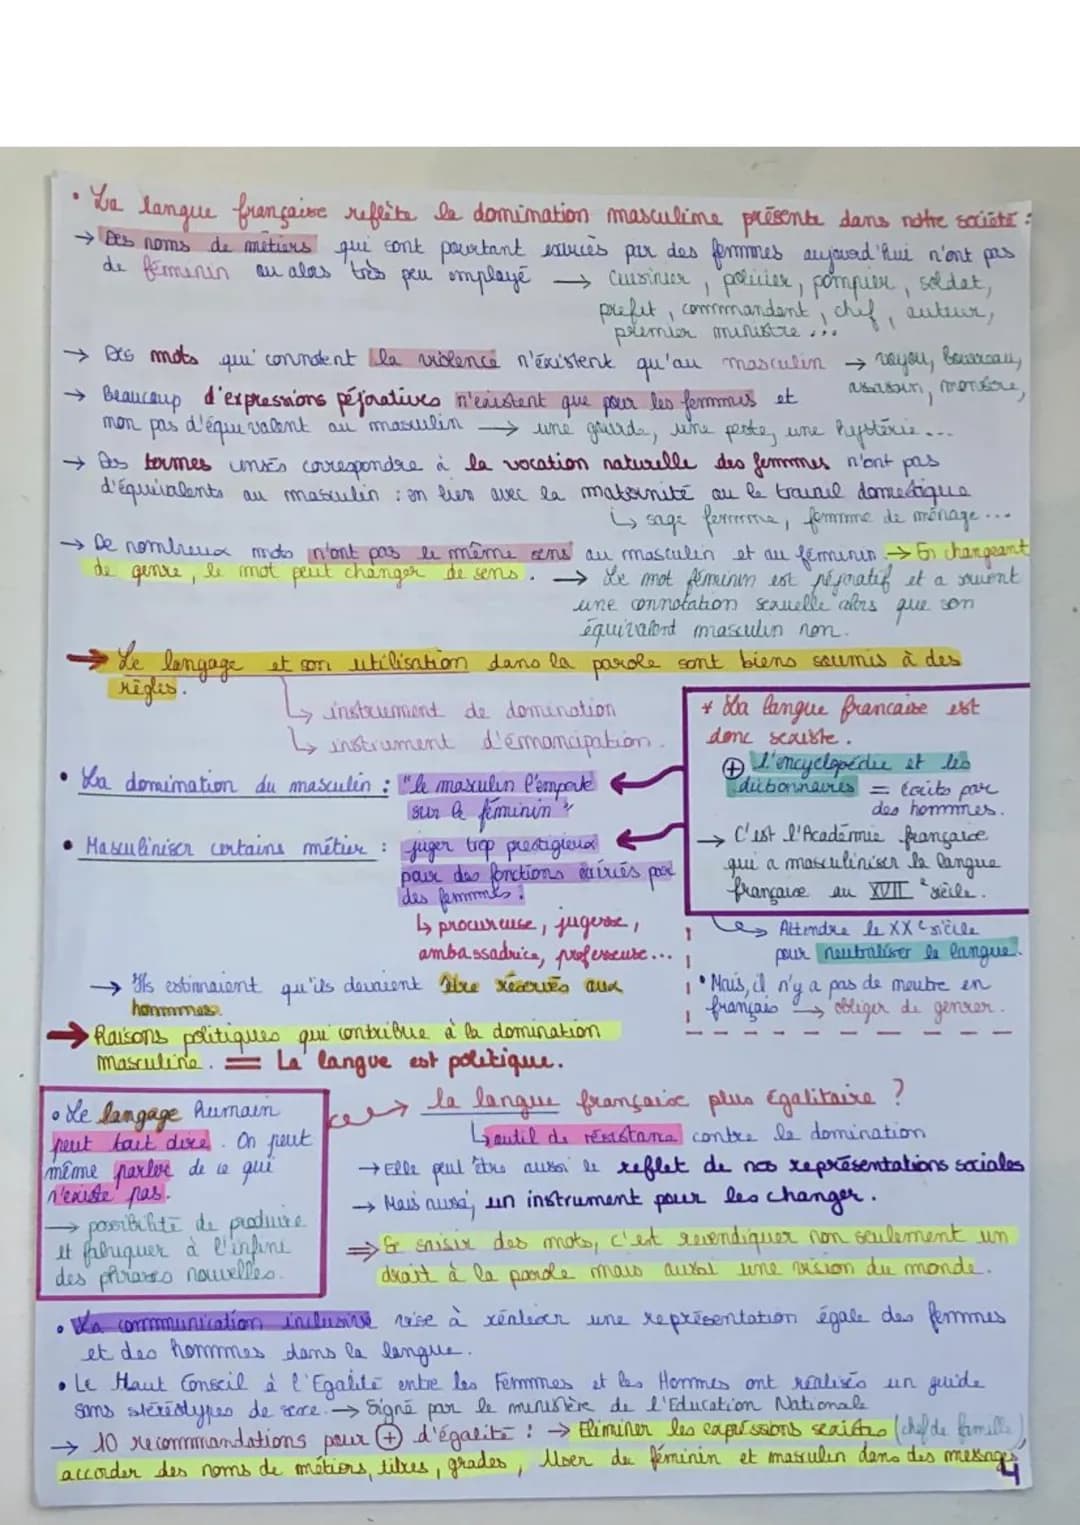 • La langue française reflète la domination masculine présente dans notre société :
→ Des noms de métiers qui sont pourtant exercés par des femmes aujourd'hui n'ont pas
de féminin ou alors très peu employé → Cuisinier, policier, pompier, soldat,
prefet, commandant, chef, auteur,
premier ministre ...
→ Des mots qui connotent la violence n'existent qu'au masculin → voyou, bourreau,
assassin, monstre,
→ Beaucoup d'expressions péjoratives n'existent que pour les femmes et
non pas d'équivalent au masculin → une gourde, une peste, une hystérie...
→ Des termes censés correspondre à la vocation naturelle des femmes n'ont pas
d'équivalents au masculin : en lien avec la maternité ou le travail domestique
↳ sage femme, femme de ménage...
→ De nombreux mots n'ont pas le même sens au masculin et au féminin. → En changeant
de genre, le mot peut changer de sens. → Le mot féminin est péjoratif et a souvent
une connotation sexuelle alors que son
équivalent masculin non.
→ Le langage et son utilisation dans la parole sont biens soumis à des
règles.
↳ instrument de domination
↳ instrument d'émancipation.
* La langue francaise est
donc sexiste.
⊕ L'encyclopédie et les
dictionnaires = écrits par
des hommes.
→ C'est l'Académie française
qui a masculiniser la langue
française au XVII e siècle.
↳ Attendre le XX e siècle
pour neutraliser la langue.
• Mais, il n'y a pas de neutre en
français → obliger de genrer.
• La domination du masculin : "le masculin l'emporte
sur le féminin"
• Masculiniser certains métier : juger trop prestigieux
pour des fonctions exercés par
des femmes.
↳ procureuse, jugesse,
ambassadrice, professeuse...
→ Ils estimaient qu'ils devaient être réservés aux
hommes.
→ Raisons politiques qui contribue à la domination
masculine. = La langue est politique.
• Le langage humain
peut tout dire. On peut
même parler de ce qui
n'existe pas.
→ possibilité de produire
et fabriquer à l'infini
des phrases nouvelles.
→ la langue française plus égalitaire ?
↳ outil de résistance contre la domination
→ Elle peut être aussi le reflet de nos représentations sociales
→ Mais aussi, un instrument pour les changer.
⇒ Se saisir des mots, c'est revendiquer non seulement un
droit à la parole mais aussi une vision du monde.
• La communication inclusive vise à réaliser une représentation égale des femmes
et des hommes dans la langue.
• Le Haut Conseil à l'Egalité entre les Femmes et les Hommes ont réalisés un guide
sans stéréotypes de sexe. → Signé par le ministère de l'Education Nationale
→ 10 recommandations pour ⊕ d'égalité : → Eliminer les expressions sexistes (chef de famille)
accorder des noms de métiers, titres, grades, User du féminin et masculin dans des messages
4